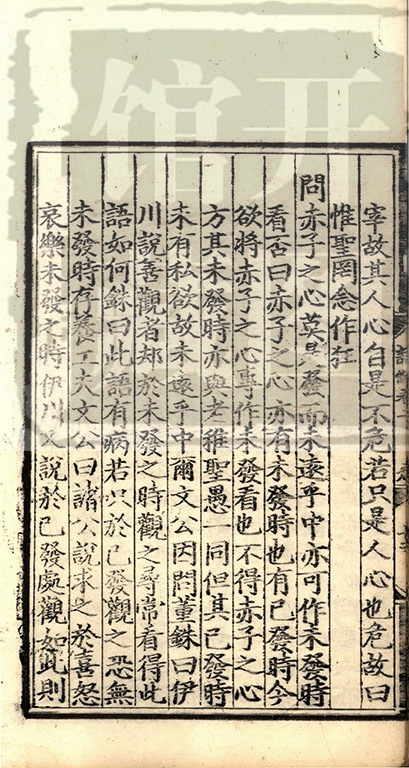 宰故其人心自是不危若只是人心也危故曰
惟聖罔念作狂
問赤子之心莫是發而未遠乎中亦可作未發時
看否曰赤子之心亦有未發時也有已發時今
欲將赤子之心專作未發看也不得赤子之心
方其未發時亦與老稚聖愚一同但其已發時
未有私欲故未遠乎中爾文公因問董銖曰伊
川說善觀者却於未發之時觀之尋常看得此
語如何銖曰此語有病若只於已發觀之恐無
未發時存養工夫文公曰諸公說求之於喜怒
哀樂未發之時伊川又說於已發處觀如此則